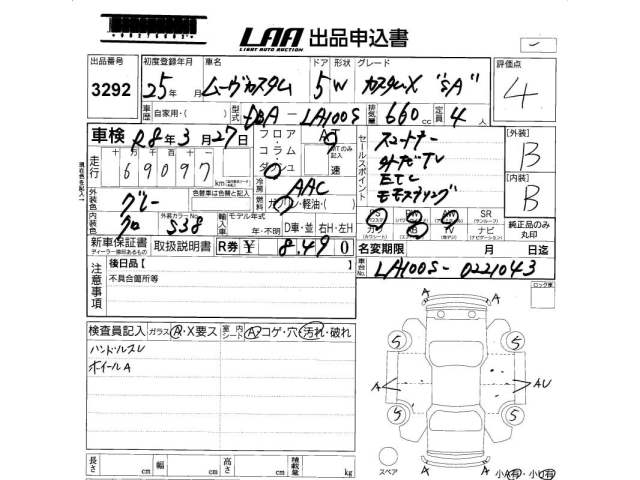 LAA 出品申込書
LIGHT AUTO AUCTION
出品番号 初度登録年月 車名 ドア 形状 グレード 評価点
3292 25年 月 ムーヴカスタム 5 W カスタムX "SA" 4
車歴 自家用・( ) 型式 DBA - LA100S 排気量 660 cc 定員 4 人
車検 R8年3月27日 フロア AT セールスポイント スマートキー [外装]
走行 十万千百十一 コラム MTのみ記入 外ナビTV B
69097 km ダッシュ 速 ETC [内装]
現在色記入↑ 冷房 AAC モモステリング B
外装色 グレー 色替車は色替と記入 燃料 ガソリン・軽油・( )
内装色 クロ 外装カラーNo. S38 輸入車 モデル年式 年・不明 D車・並 右H・左H
PS PW AW SR (サンルーフ) 純正品のみ丸印
カワ AB TV ナビ (ナビゲーション)
新車保証書 ディーラー捺印あるもの 取扱説明書 R券 ¥ 8,490 名変期限 月 日迄
注意事項 後日品[ ] 車台No. LA100S-0221043
不具合箇所等 ロック車
検査員記入 ガラス A・X要ス 室内シート A・コゲ・穴・汚れ・破れ
ハンドルスレ
ホイールA
A A
5 5
A AU
5 5
A A
スペア
長さ cm 幅 cm 高さ cm 積載量 kg 小A有・小U有